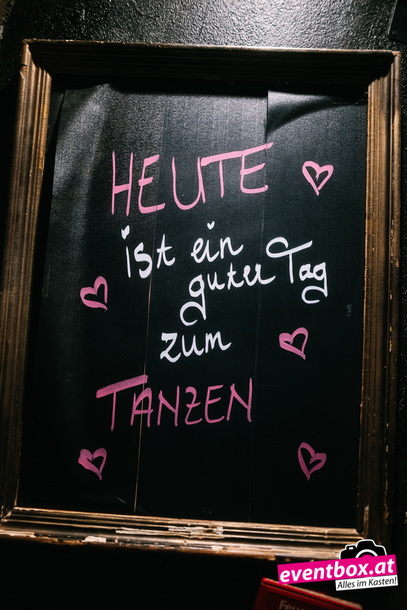 HEUTE
ist ein
guter Tag
zum
TANZEN
eventbox.at
Alles im Kasten!